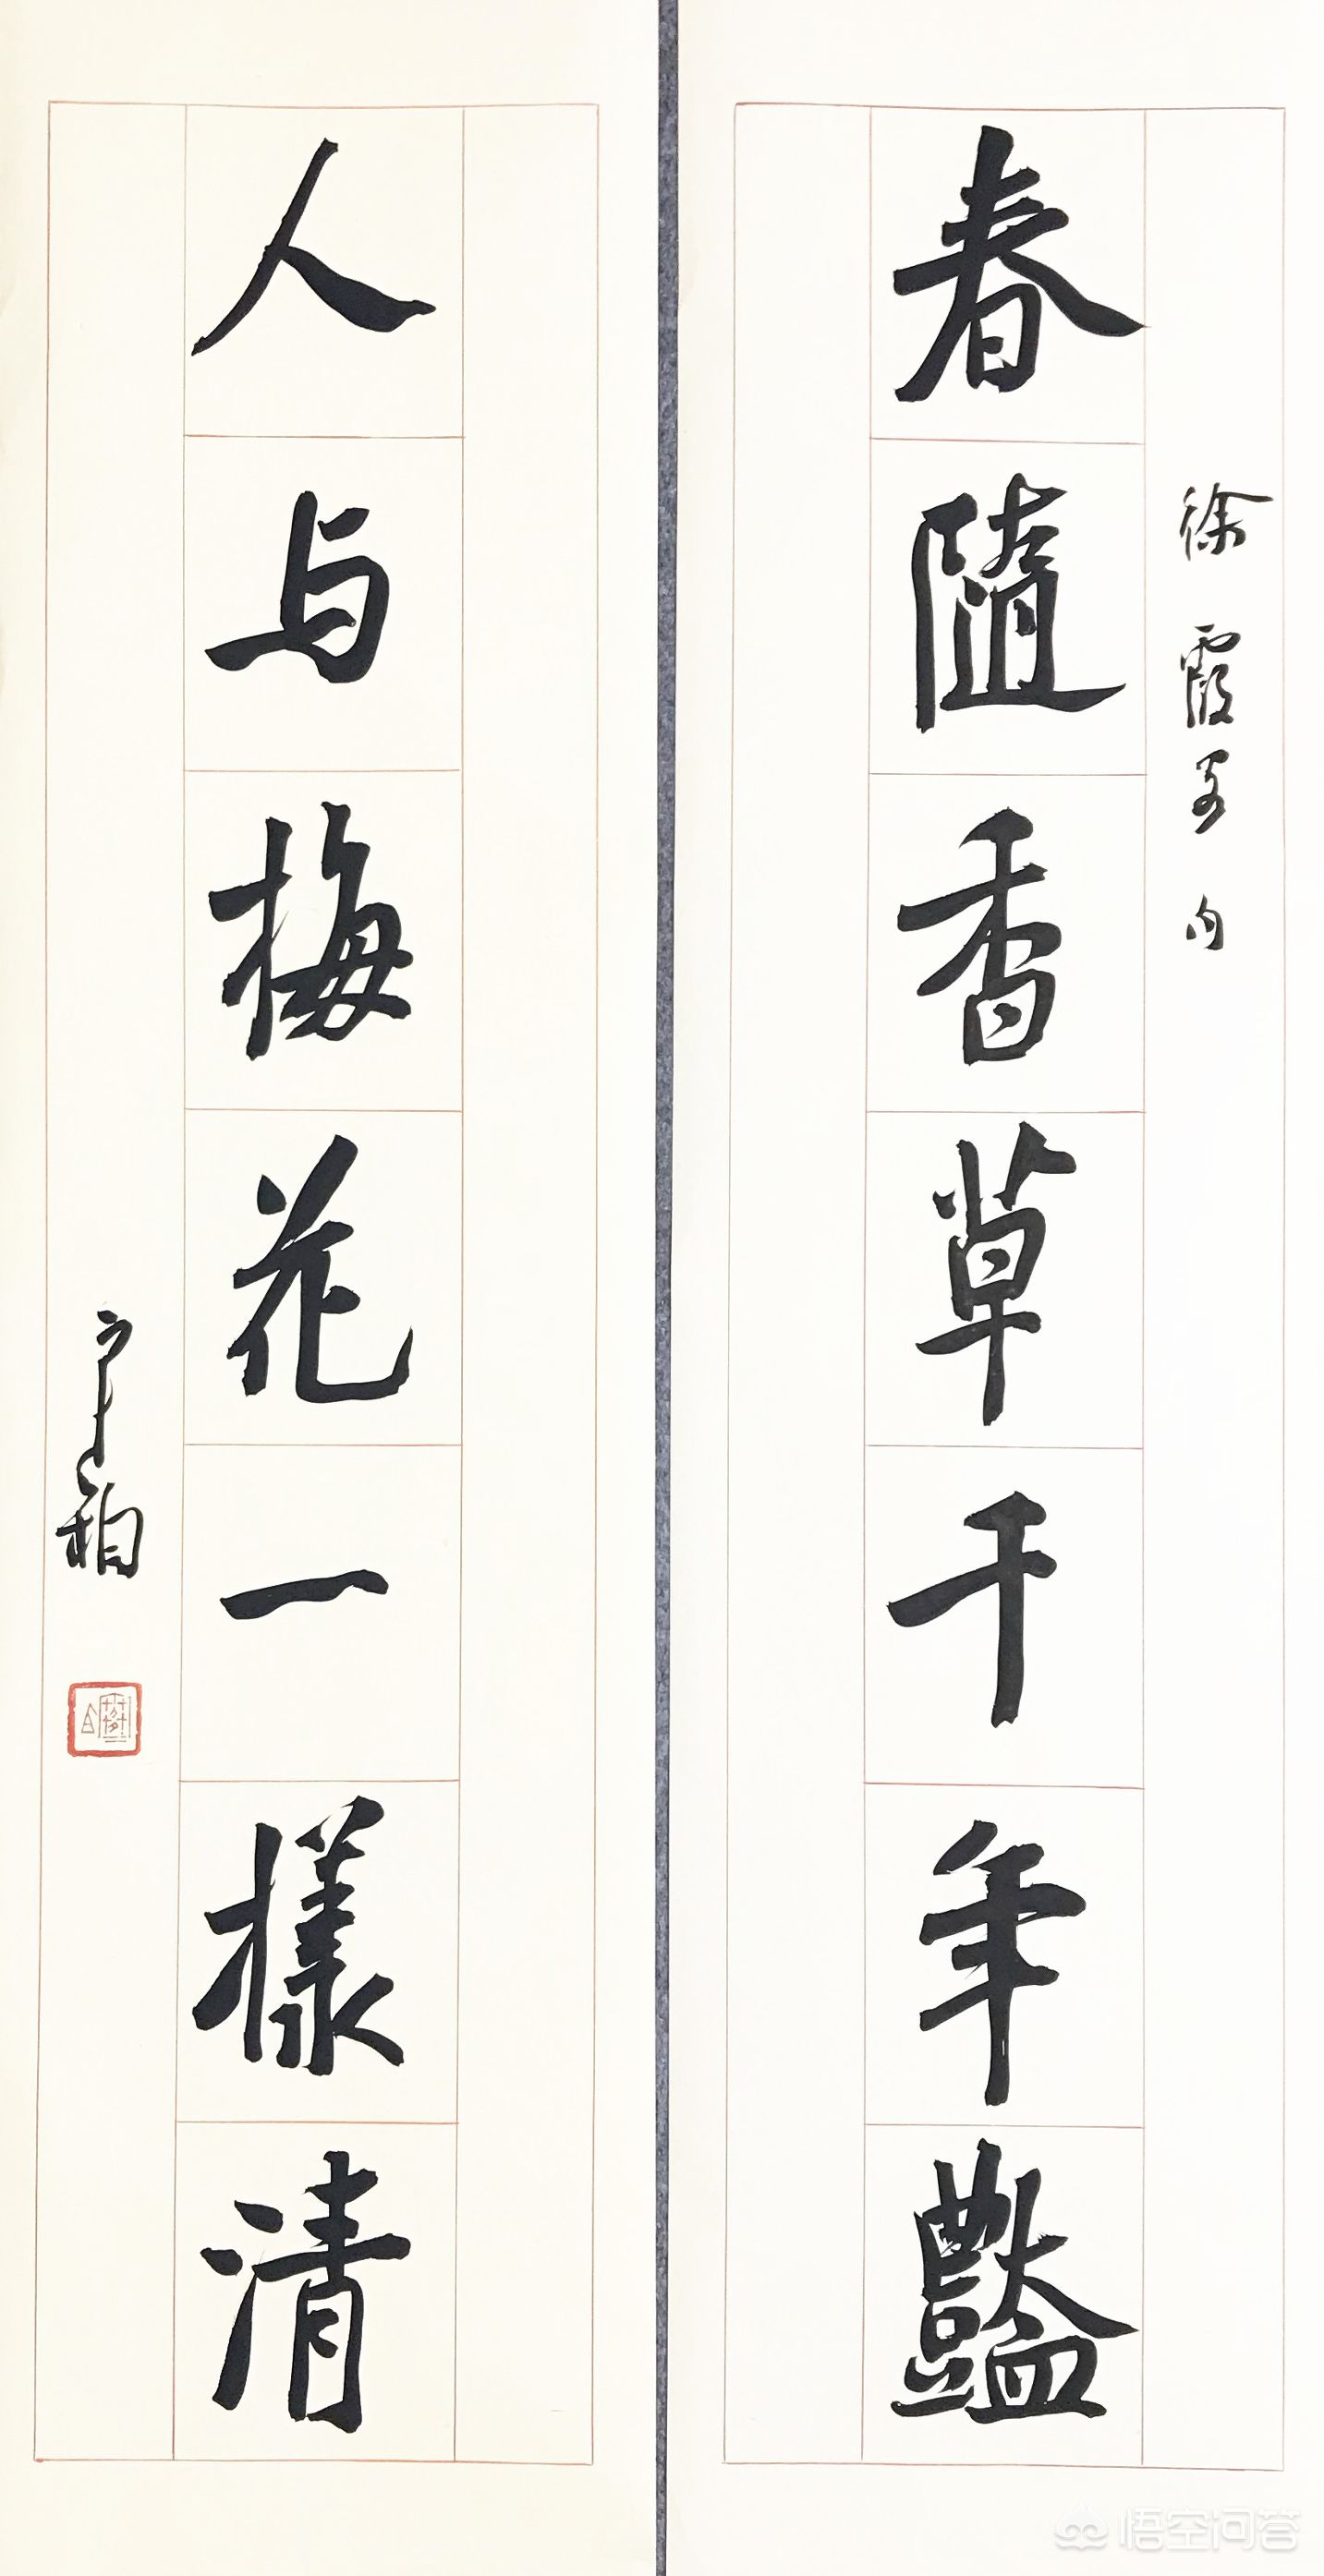 徐霞客句
春隨香草千年豔
人与梅花一樣清
悟空问答